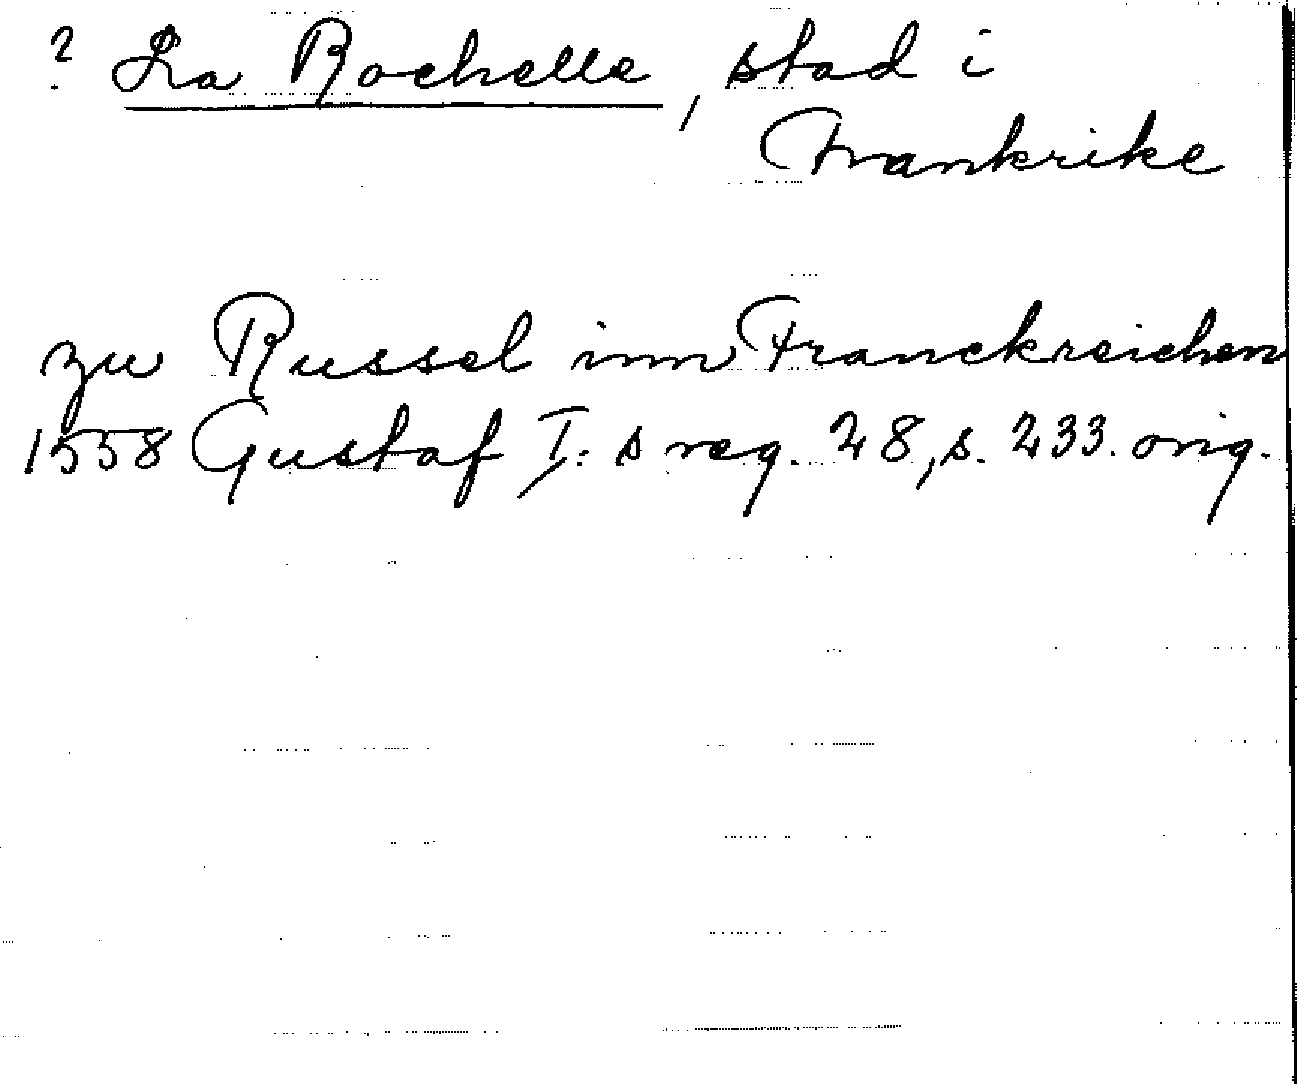 ? La Rochelle, stad i
Frankrike
zu Russel inn Franckreichen
1558 Gustaf I:s reg. 28, s. 233. orig.